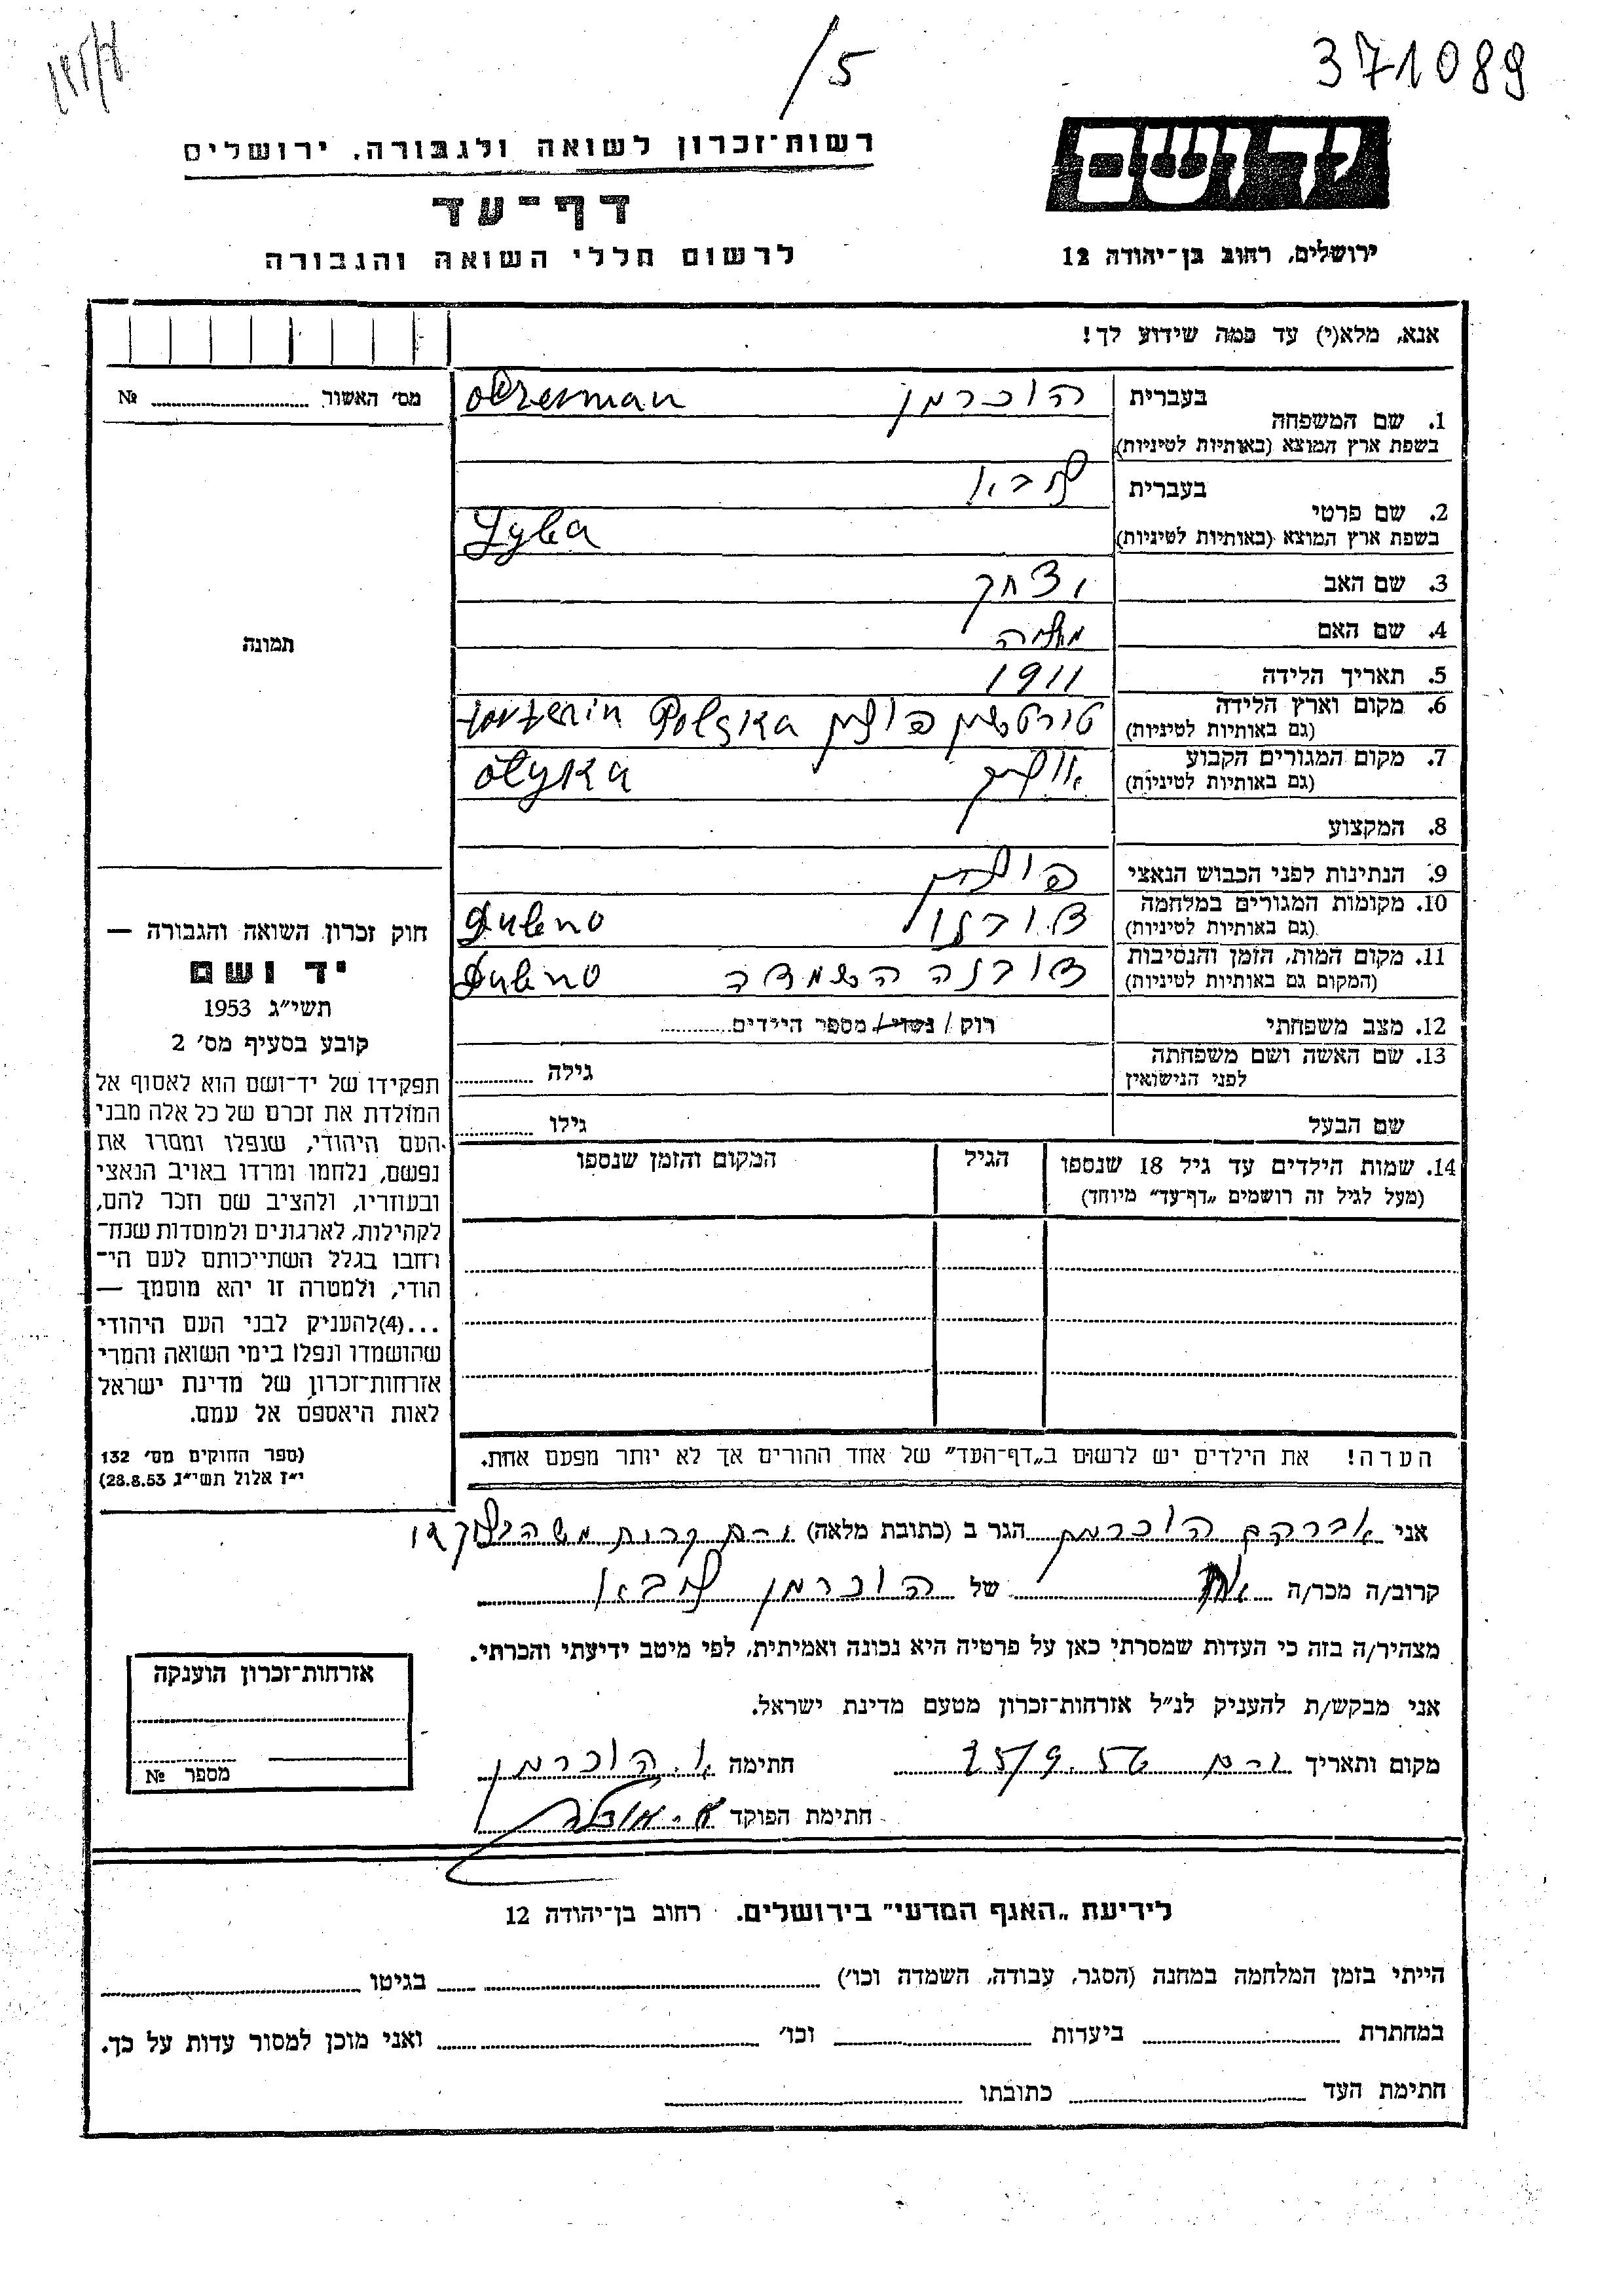 371089
/5
יד ושם
ירושלים, רחוב בן־יהודה 12
רשות־זכרון לשואה ולגבורה, ירושלים
דף־עד
לרשום חללי השואה והגבורה
אנא, מלא(י) עד כמה שידוע לך!
מס׳ האשור ........ №
1. שם המשפחה
בעברית הוכרמן
בשפת ארץ המוצא (באותיות לטיניות)
2. שם פרטי
בעברית
בשפת ארץ המוצא (באותיות לטיניות)
3. שם האב יצחק
4. שם האם
5. תאריך הלידה 1911
6. מקום וארץ הלידה
(גם באותיות לטיניות) פולין Polska
7. מקום המגורים הקבוע
(גם באותיות לטיניות) Ołyka
8. המקצוע
9. הנתינות לפני הכבוש הנאצי פולין
10. מקומות המגורים במלחמה
(גם באותיות לטיניות) דובנו Dubno
11. מקום המות, הזמן והנסיבות
(המקום גם באותיות לטיניות) דובנה השמדה Dubno
12. מצב משפחתי רוק / נשוי / מספר הילדים
13. שם האשה ושם משפחתה
לפני הנישואין
גילה
שם הבעל
גילו
14. שמות הילדים עד גיל 18 שנספו
(מעל לגיל זה רושמים „דף־עד״ מיוחד)
הגיל
המקום והזמן שנספו
הערה! את הילדים יש לרשום ב„דף־העד״ של אחד ההורים אך לא יותר מפעם אחת.
תמונה
חוק זכרון השואה והגבורה —
יד ושם
תשי״ג 1953
קובע בסעיף מס׳ 2
תפקידו של יד־ושם הוא לאסוף אל
המולדת את זכרם של כל אלה מבני
העם היהודי, שנפלו ומסרו את
נפשם, נלחמו ומרדו באויב הנאצי
ובעוזריו, ולהציב שם וזכר להם,
לקהילות, לארגונים ולמוסדות שנח־
רחבו בגלל השתייכותם לעם הי־
הודי, ולמטרה זו יהא מוסמך —
...(4)להעניק לבני העם היהודי
שהושמדו ונפלו בימי השואה והמרי
אזרחות־זכרון של מדינת ישראל
לאות היאספם אל עמם.
(ספר החוקים מס׳ 132
י״ז אלול תשי״ג 28.8.53)
אני אברהם הוכרמן הגר ב (כתובת מלאה)
קרוב/ה מכר/ה אח של הוכרמן
מצהיר/ה בזה כי העדות שמסרתי כאן על פרטיה היא נכונה ואמיתית, לפי מיטב ידיעתי והכרתי.
אני מבקש/ת להעניק לנ״ל אזרחות־זכרון מטעם מדינת ישראל.
מקום ותאריך חתימה א. הוכרמן
חתימת הפוקד
אזרחות־זכרון הוענקה
מספר №
לידיעת „האגף המדעי״ בירושלים. רחוב בן־יהודה 12
הייתי בזמן המלחמה במחנה (הסגר, עבודה, השמדה וכו׳) בגיטו
במחתרת ביערות וכו׳ ואני מוכן למסור עדות על כך.
חתימת העד כתובתו